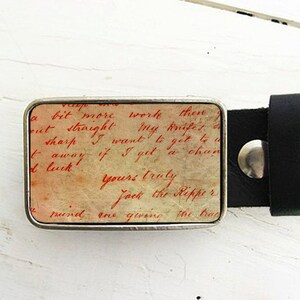 a bit more work then
out straight My knife's
sharp I want to get to w
t away if I get a chan
d luck
yours truly
Jack the Ripper
t mind me giving the trad